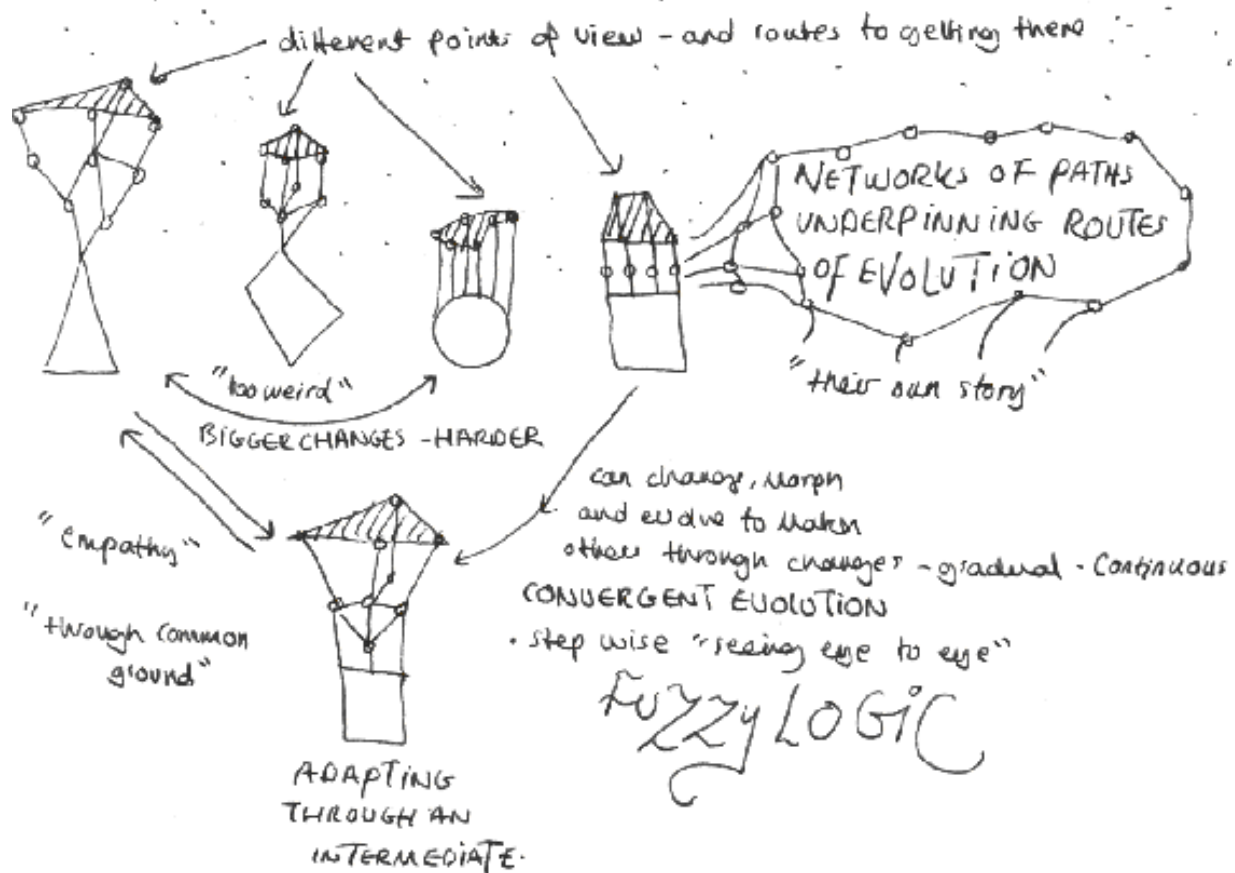 different points of view - and routes to getting there
NETWORKS OF PATHS
UNDERPINNING ROUTES
OF EVOLUTION
"their own story"
"too weird"
BIGGER CHANGES - HARDER
"empathy"
"through common
ground"
can change, morph
and evolve to match
others through changes - gradual - continuous
CONVERGENT EVOLUTION
• step wise "seeing eye to eye"
FUZZY LOGIC
ADAPTING
THROUGH AN
INTERMEDIATE.